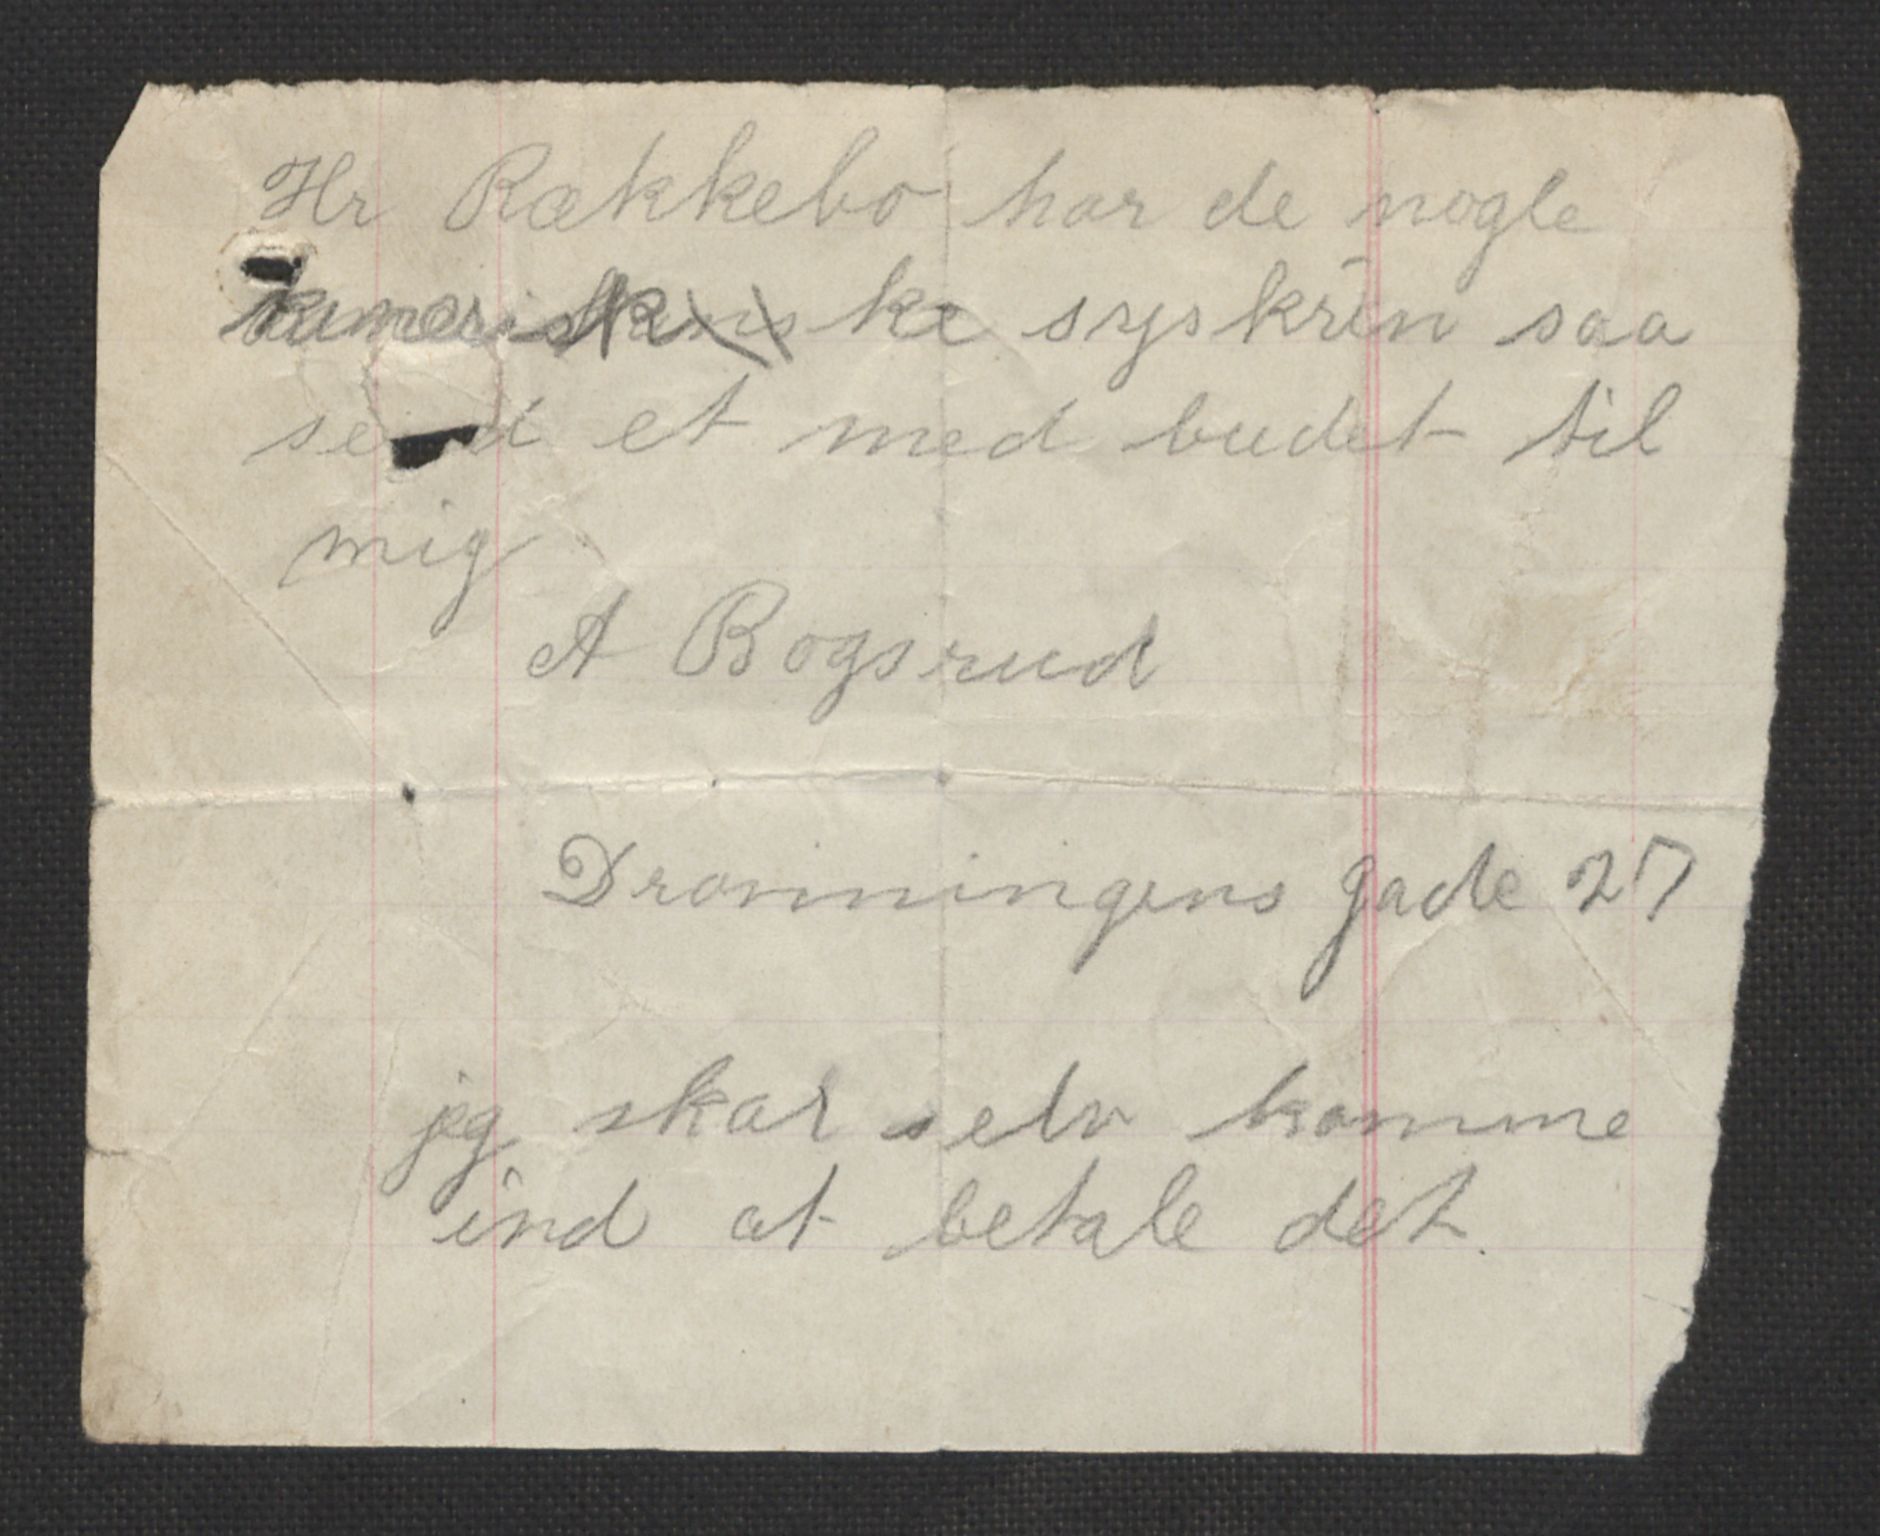 Hr Rækkebo har de nogle
ke syskrin saa
send et med budet til
mig
A Bogsrud
Dronningens gade 27
jeg skal selv komme
ind at betale det